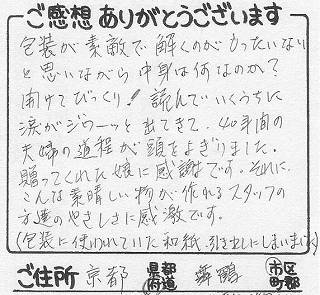 ご感想ありがとうございます
包装が素敵で解くのがもったいない
と思いながら中身は何なのか?
開けてびっくり!読んでいくうちに
涙がジワーッと出てきて、40年間の
夫婦の道程が頭をよぎりました。
贈ってくれた娘に感謝です。それに、
こんな素晴しい物が作れるスタッフの
方達のやさしさに感激です。
(包装に使われていた和紙、引き出しにしまいました)
ご住所 京都 都道府県 市区町郡